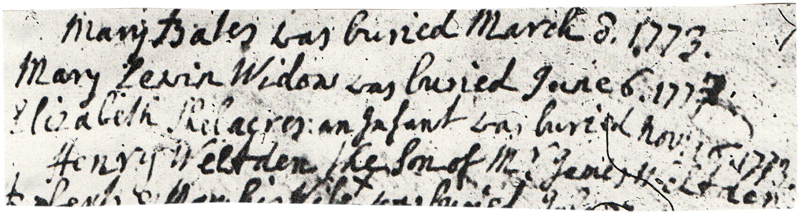 Mary Bales was buried March 8. 1773.
Mary Lewin Widow was buried June 6. 1773.
Elizabeth an Infant was buried Nov: 16. 1773
Henry Weltden the Son of Mr James Weltden
was buried